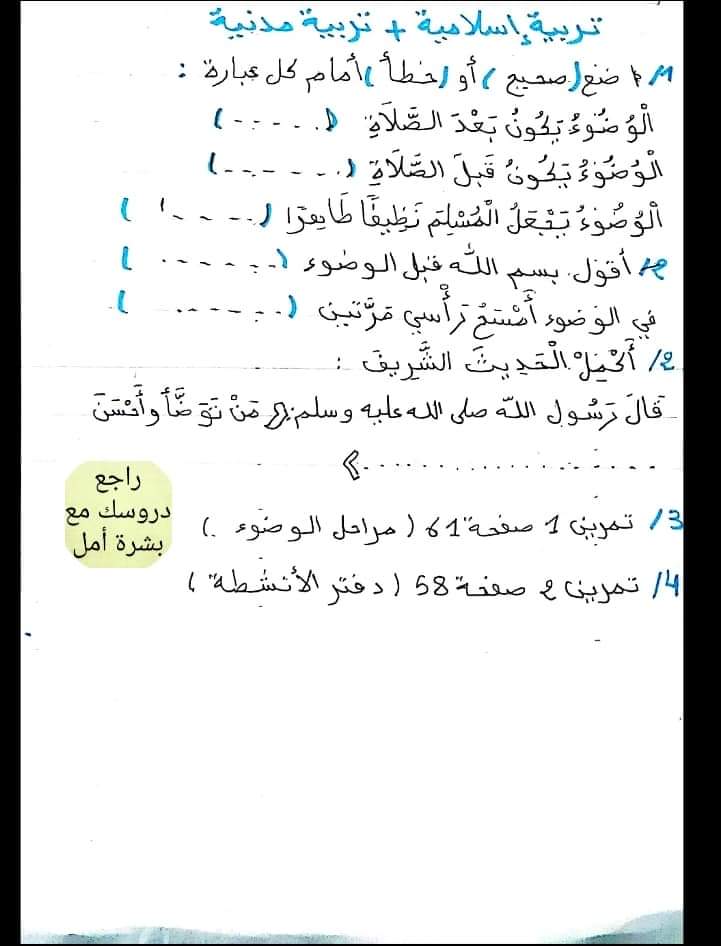 تربية إسلامية + تربية مدنية
1/ ضع (صحيح) أو (خطأ) أمام كل عبارة :
الْوُضُوءُ يَكُونُ بَعْدَ الصَّلَاةِ (......)
الْوُضُوءُ يَكُونُ قَبلَ الصَّلَاةِ (.......)
اَلْوُضُوءُ يَجْعَلُ الْمُسْلِمَ نَظِيفًا طَاهِرًا (......)
أقول بسم الله قبل الوضوء (.......)
في الوضوء أَمْسَحُ رَأْسي مَرَّتين (.......)
2/ أُكْمِلُ الْحَدِيثَ الشَّرِيفَ :
قَالَ رَسُول اللّه صلى الله عليه وسلم: « مَنْ تَوَضَّأَ وأَحْسَنَ
.................... »
3/ تمرين 1 صفحة 61 ( مراحل الوضوء . )
4/ تمرين 2 صفحة 58 ( دفتر الأنشطة )
راجع
دروسك مع
بشرة أمل